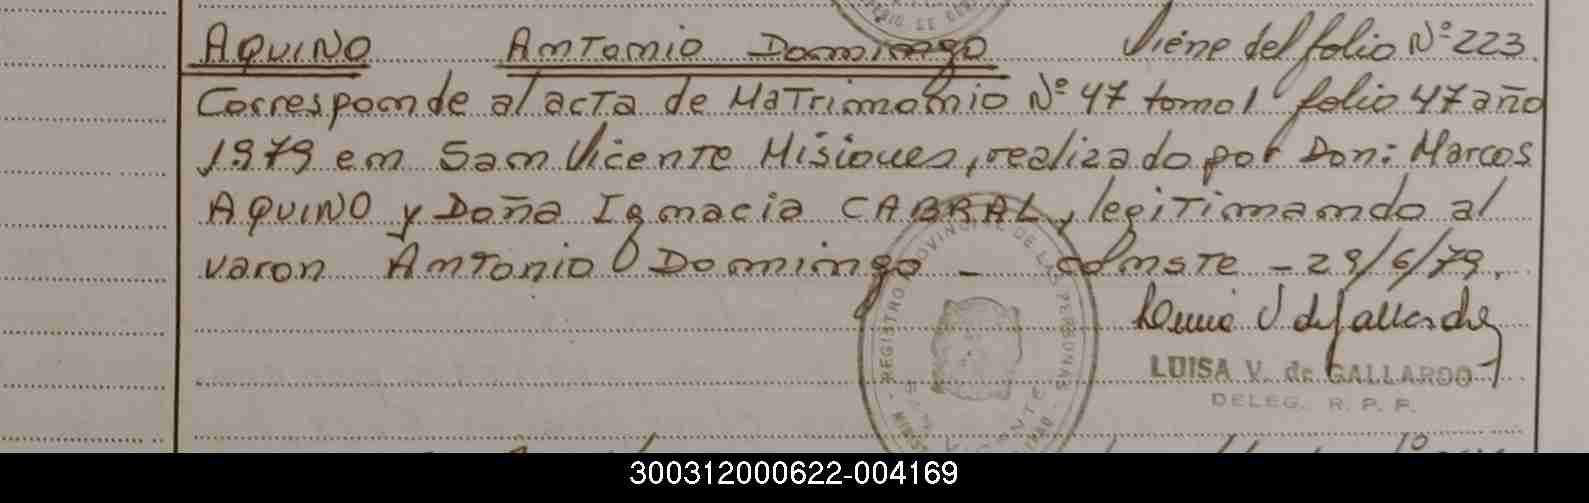 AQUINO Antonio Domingo Viene del folio Nº 223.
Corresponde al acta de Matrimonio Nº 47 tomo 1 folio 47 año
1979 en San Vicente Misiones, realizado por Don: Marcos
AQUINO y Doña Ignacia CABRAL, legitimando al
varon Antonio Domingo - conste - 29/6/79.
LUISA V. de GALLARDO
DELEG. R. P. P.
REGISTRO PROVINCIAL DE LAS PERSONAS
300312000622-004169